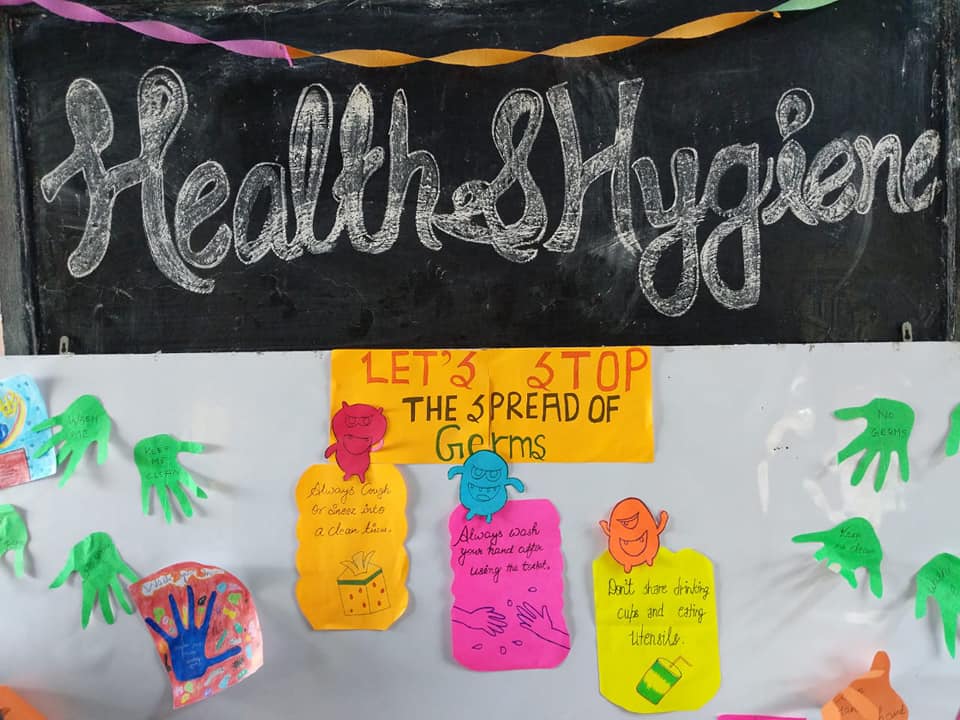 Health & Hygiene
LET'S STOP
THE SPREAD OF
Germs
WASH
ME
KEEP
ME
CLEAN
Always Cough
or sneez into
a clean tissu.
Always wash
your hand after
using the toilet.
Don't share drinking
cups and eating
Utensils.
NO
GERMS
Keep
me clean